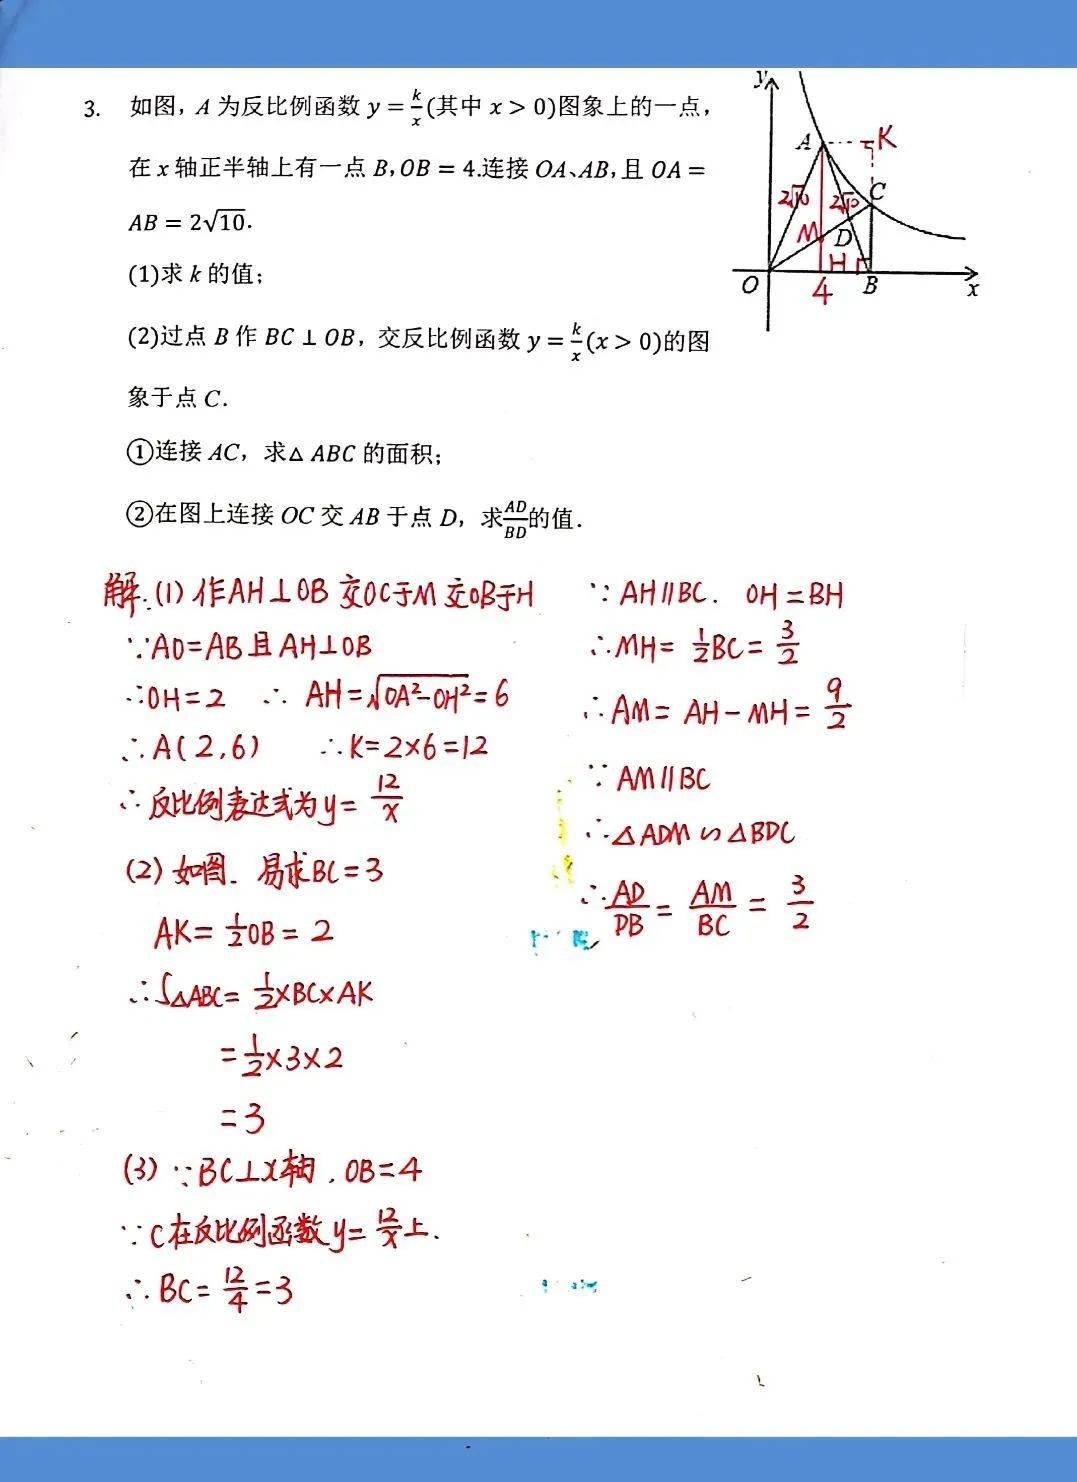 3. 如图，A 为反比例函数 y = k/x (其中 x > 0)图象上的一点，
在 x 轴正半轴上有一点 B, OB = 4.连接 OA、AB, 且 OA =
AB = 2√10.
(1)求 k 的值；
(2)过点 B 作 BC ⊥ OB，交反比例函数 y = k/x (x > 0)的图
象于点 C.
①连接 AC，求△ ABC 的面积；
②在图上连接 OC 交 AB 于点 D，求AD/BD的值.
y
A
K
C
2√10
2√10
M
D
H
O
4
B
x
解:(1) 作AH⊥OB 交OC于M 交OB于H
∵AO=AB且AH⊥OB
∴OH=2 ∴ AH=√OA²-OH²=6
∴A(2,6) ∴K=2×6=12
∴反比例表达式为y=12/x
(2) 如图. 易求BC=3
AK=1/2OB=2
∴S△ABC=1/2×BC×AK
=1/2×3×2
=3
(3) ∵BC⊥X轴, OB=4
∵C在反比例函数y=12/x上.
∴BC=12/4=3
∵AH∥BC. OH=BH
∴MH=1/2BC=3/2
∴AM=AH-MH=9/2
∵AM∥BC
∴△ADM∽△BDC
∴AD/DB=AM/BC=3/2